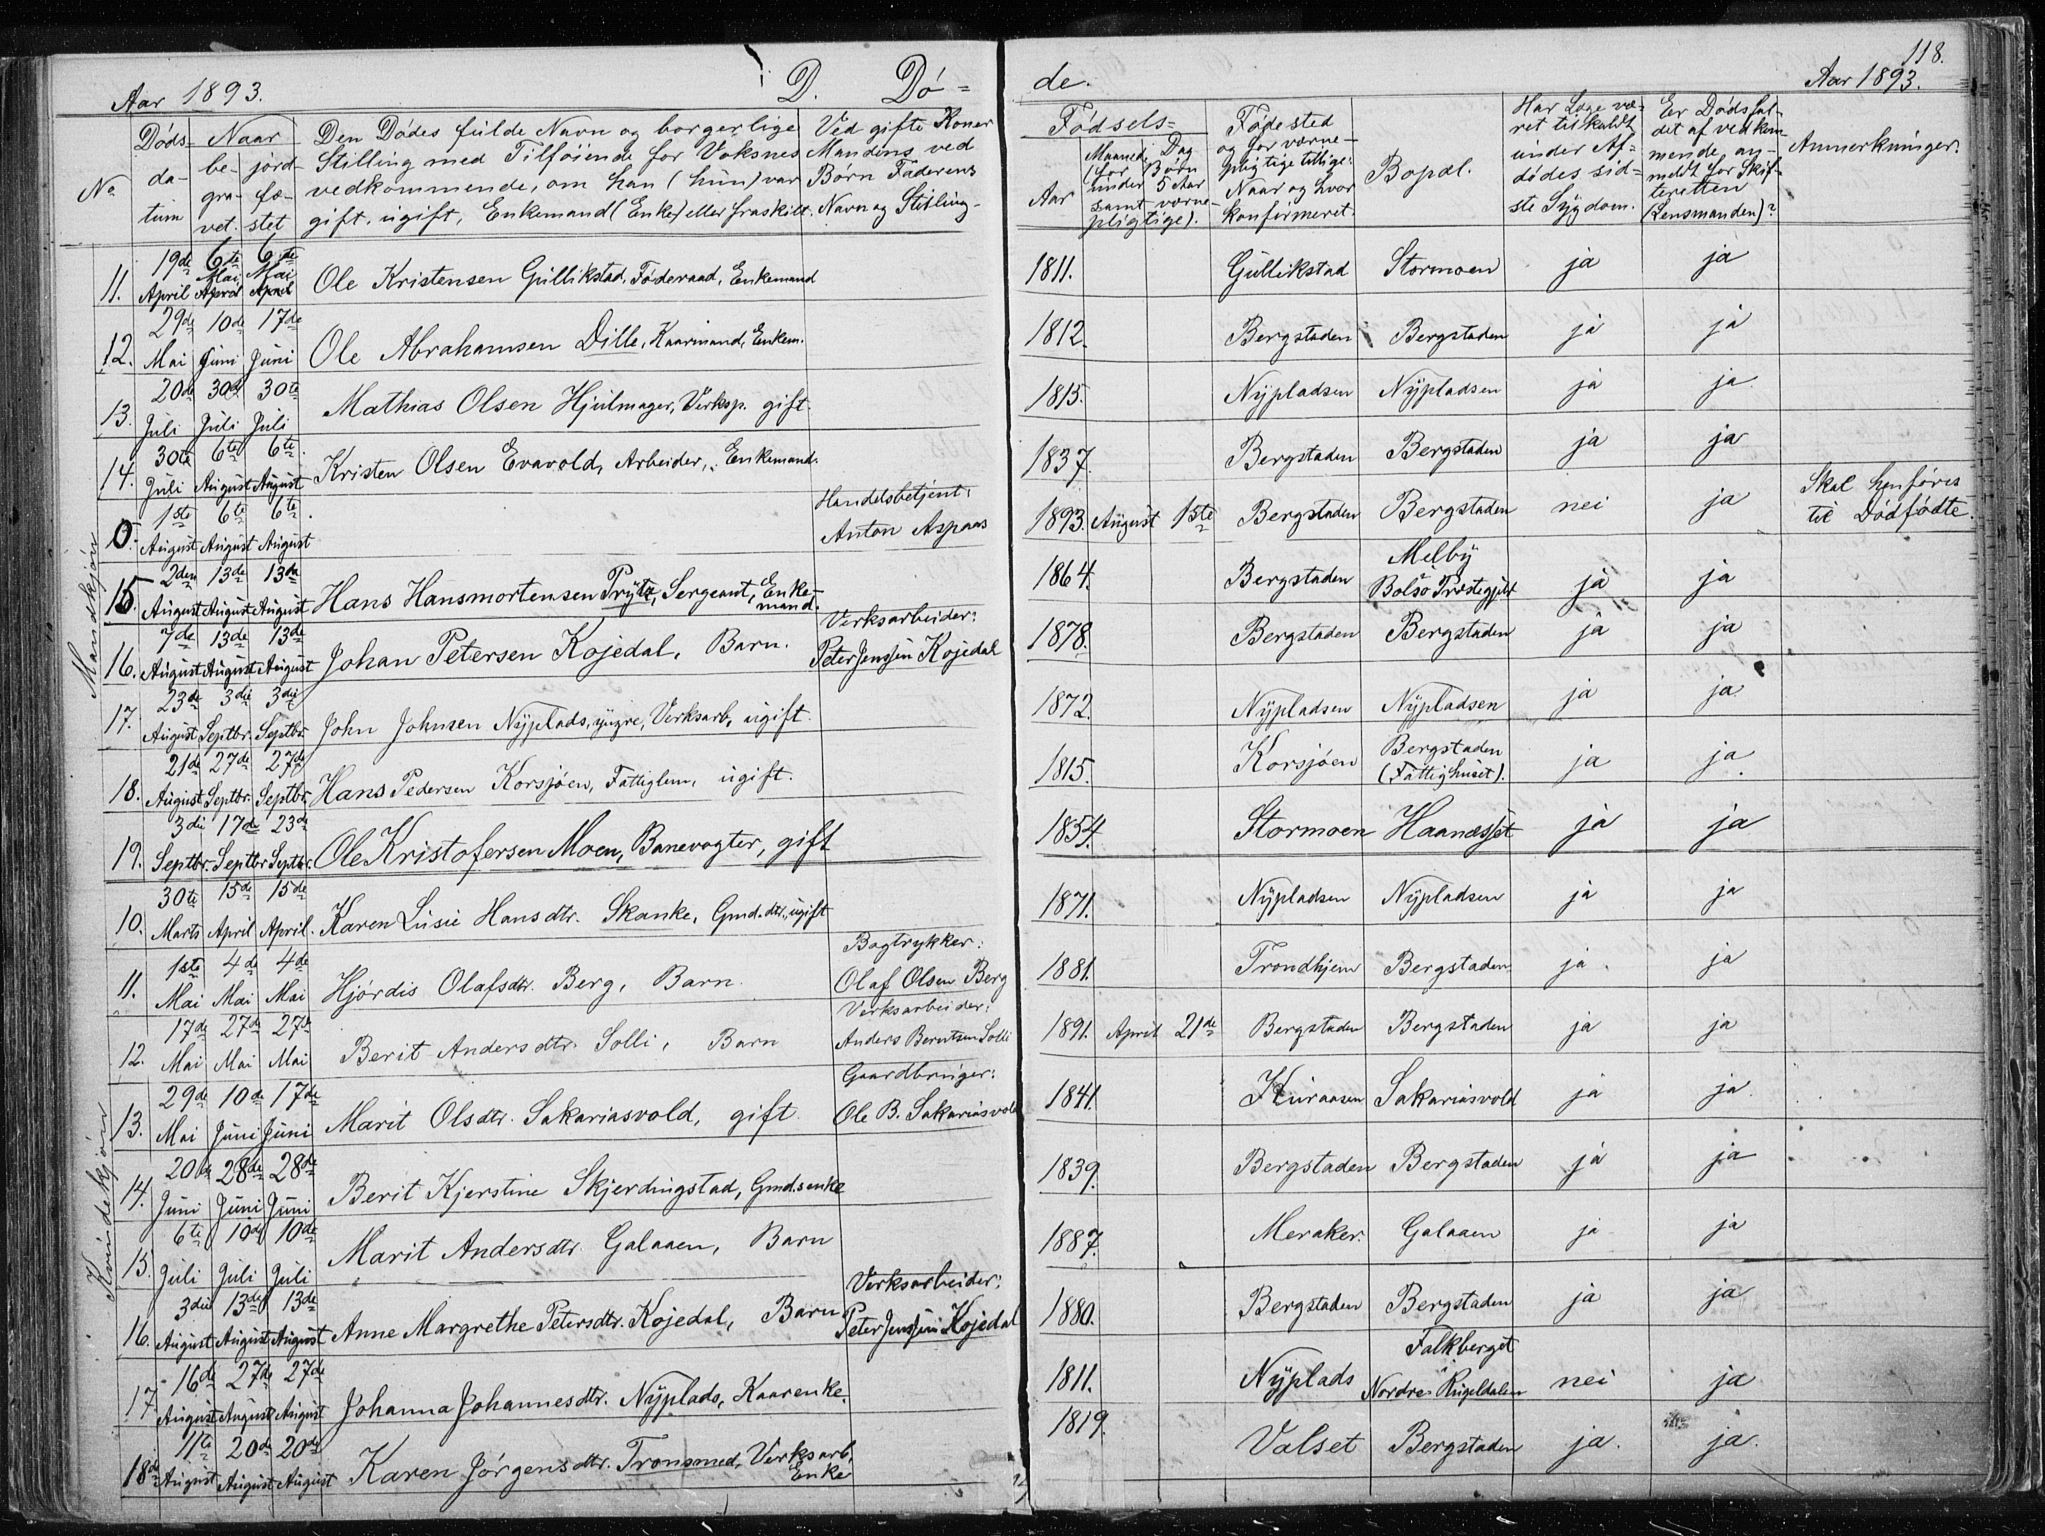 118.
Aar 1893. D. Dö=
de. Aar 1893.
No
Döds-
da-
tum
Naar
be-
gra-
vet.
jord-
fæ-
stet
Den Dödes fulde Navn og borgerlige
Stilling med Tilföiende for Voksnes
vedkommende, om han (hun) var
gift, ugift, Enkemand (Enke) eller fraskilt.
Ved gifte Koner
Mandens ved
Börn Faderens
Navn og Stilling.
Födsels=
Aar
Maaned, Dag
(for Börn
under 5 Aar
samt værne-
pligtige).
Födested
og for værne-
pligtige tillige:
Naar og hvor
konfirmeret.
Bopæl.
Har Læge væ-
ret tilkaldt
under Af-
dödes sid-
ste Sygdom.
Er Dödsfal-
det af vedkom-
mende an-
meldt for Skif-
teretten
(Lensmanden)?
Anmerkninger.
Mandkjön
11. 19de April 6te Mai April 6te Mai April Ole Kristensen Gullikstad, Föderaad, Enkemand 1811. Gullikstad Stormoen ja ja
12. 29de Mai 10de Juni 17de Juni Ole Abrahamsen Dille, Kaarmand, Enkem. 1812. Bergstaden Bergstaden ja ja
13. 20de Juli 30te Juli 30te Juli Mathias Olsen Hjulmager, Verksp. gift. 1815. Nypladsen Nypladsen ja ja
14. 30te Juli 6te August 6te August Kristen Olsen Evavold, Arbeider, Enkemand. 1837. Bergstaden Bergstaden ja ja
0. 1ste August 6te August 6te August Handelsbetjent: Anton Aspaas 1893. August 1ste Bergstaden Bergstaden nei ja Skal henföres
til Dödfödte.
15. 2den August 13de August 13de August Hans Hansmortensen Prytz, Sergeant, Enke-
mand. 1864. Bergstaden Melby
Bolsö Præstegjeld ja ja
16. 7de August 13de August 13de August Johan Petersen Kojedal, Barn. Verksarbeider:
Peter Jenssen Kojedal 1878. Bergstaden Bergstaden ja ja
17. 23de August 3die Septbr. 3die Septbr. John Johnsen Nyplads, yngre, Verksarb, ugift. 1872. Nypladsen Nypladsen ja ja
18. 21de August 27de Septbr. 27de Septbr. Hans Pedersen Korsjöen, Fattiglem, ugift. 1815. Korsjöen Bergstaden
(Fattighuset). ja ja
19. 3die Septbr. 17de Septbr 23de Septbr. Ole Kristofersen Moen, Banevogter, gift 1854. Stormoen Haanæsset ja ja
Kvindekjön
10. 30te Marts 15de April 15de April. Karen Lusie Hansdtr. Skanke, Gmd.dtr., ugift 1871. Nypladsen Nypladsen ja ja
11. 1ste Mai 4de Mai 4de Mai Hjördis Olafsdtr. Berg, Barn. Bogtrykker:
Olaf Olsen Berg 1881. Trondhjem Bergstaden ja ja
12. 17de Mai 27de Mai 27de Mai Berit Andersdtr. Solli, Barn Verksarbeider:
Anders Berntsen Solli 1891. April 21de Bergstaden Bergstaden ja ja
13. 29de Mai 10de Juni 17de Juni Marit Olsdtr. Sakariasvold, gift Gaardbruger:
Ole B. Sakariasvold 1841. Kuraasen Sakariasvold ja ja
14. 20de Juni 28de Juni 28de Juni Berit Kjerstine Skjerdingstad, Gmd.senke 1839. Bergstaden Bergstaden ja ja
15. 6te Juli 10de Juli 10de Juli Marit Andersdtr. Galaaen, Barn 1887. Meraker. Galaaen ja ja
16. 3die August 13de August 13de August Anne Margrethe Petersdtr. Kojedal, Barn Verksarbeider:
Peter Jenssen Kojedal 1880. Bergstaden Bergstaden ja ja
17. 16de August 27de August 27de August Johanna Johannesdtr. Nyplads, Kaarenke. 1811. Nyplads Falkberget
i
Nordre Rugeldalen nei ja
18. 11te August 20de August 20de August Karen Jörgensdtr. Tronsmed, Verksarb.
Enke 1819. Valset Bergstaden ja. ja.